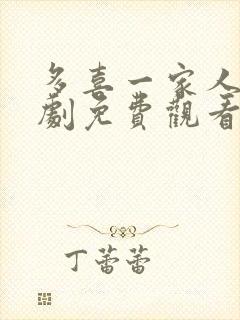 多喜一家人
劇免費觀看
丁蕾蕾